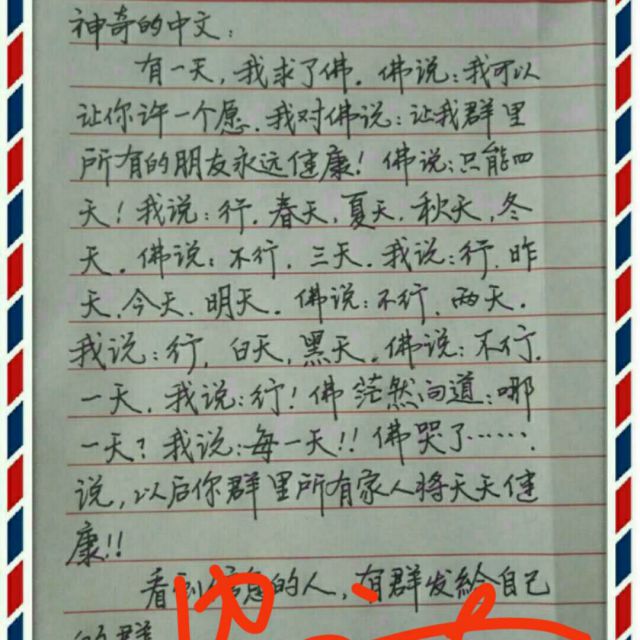 神奇的中文：
有一天，我求了佛。佛说：我可以
让你许一个愿。我对佛说：让我群里
所有的朋友永远健康！佛说：只能四
天！我说：行，春天，夏天，秋天，冬
天。佛说：不行，三天。我说：行，昨
天，今天，明天。佛说：不行，两天。
我说：行，白天，黑天。佛说：不行，
一天，我说：行！佛茫然问道：哪
一天？我说：每一天！！佛哭了……
说，以后你群里所有家人将天天健
康！！
看到信息的人，有群发给自己
的群